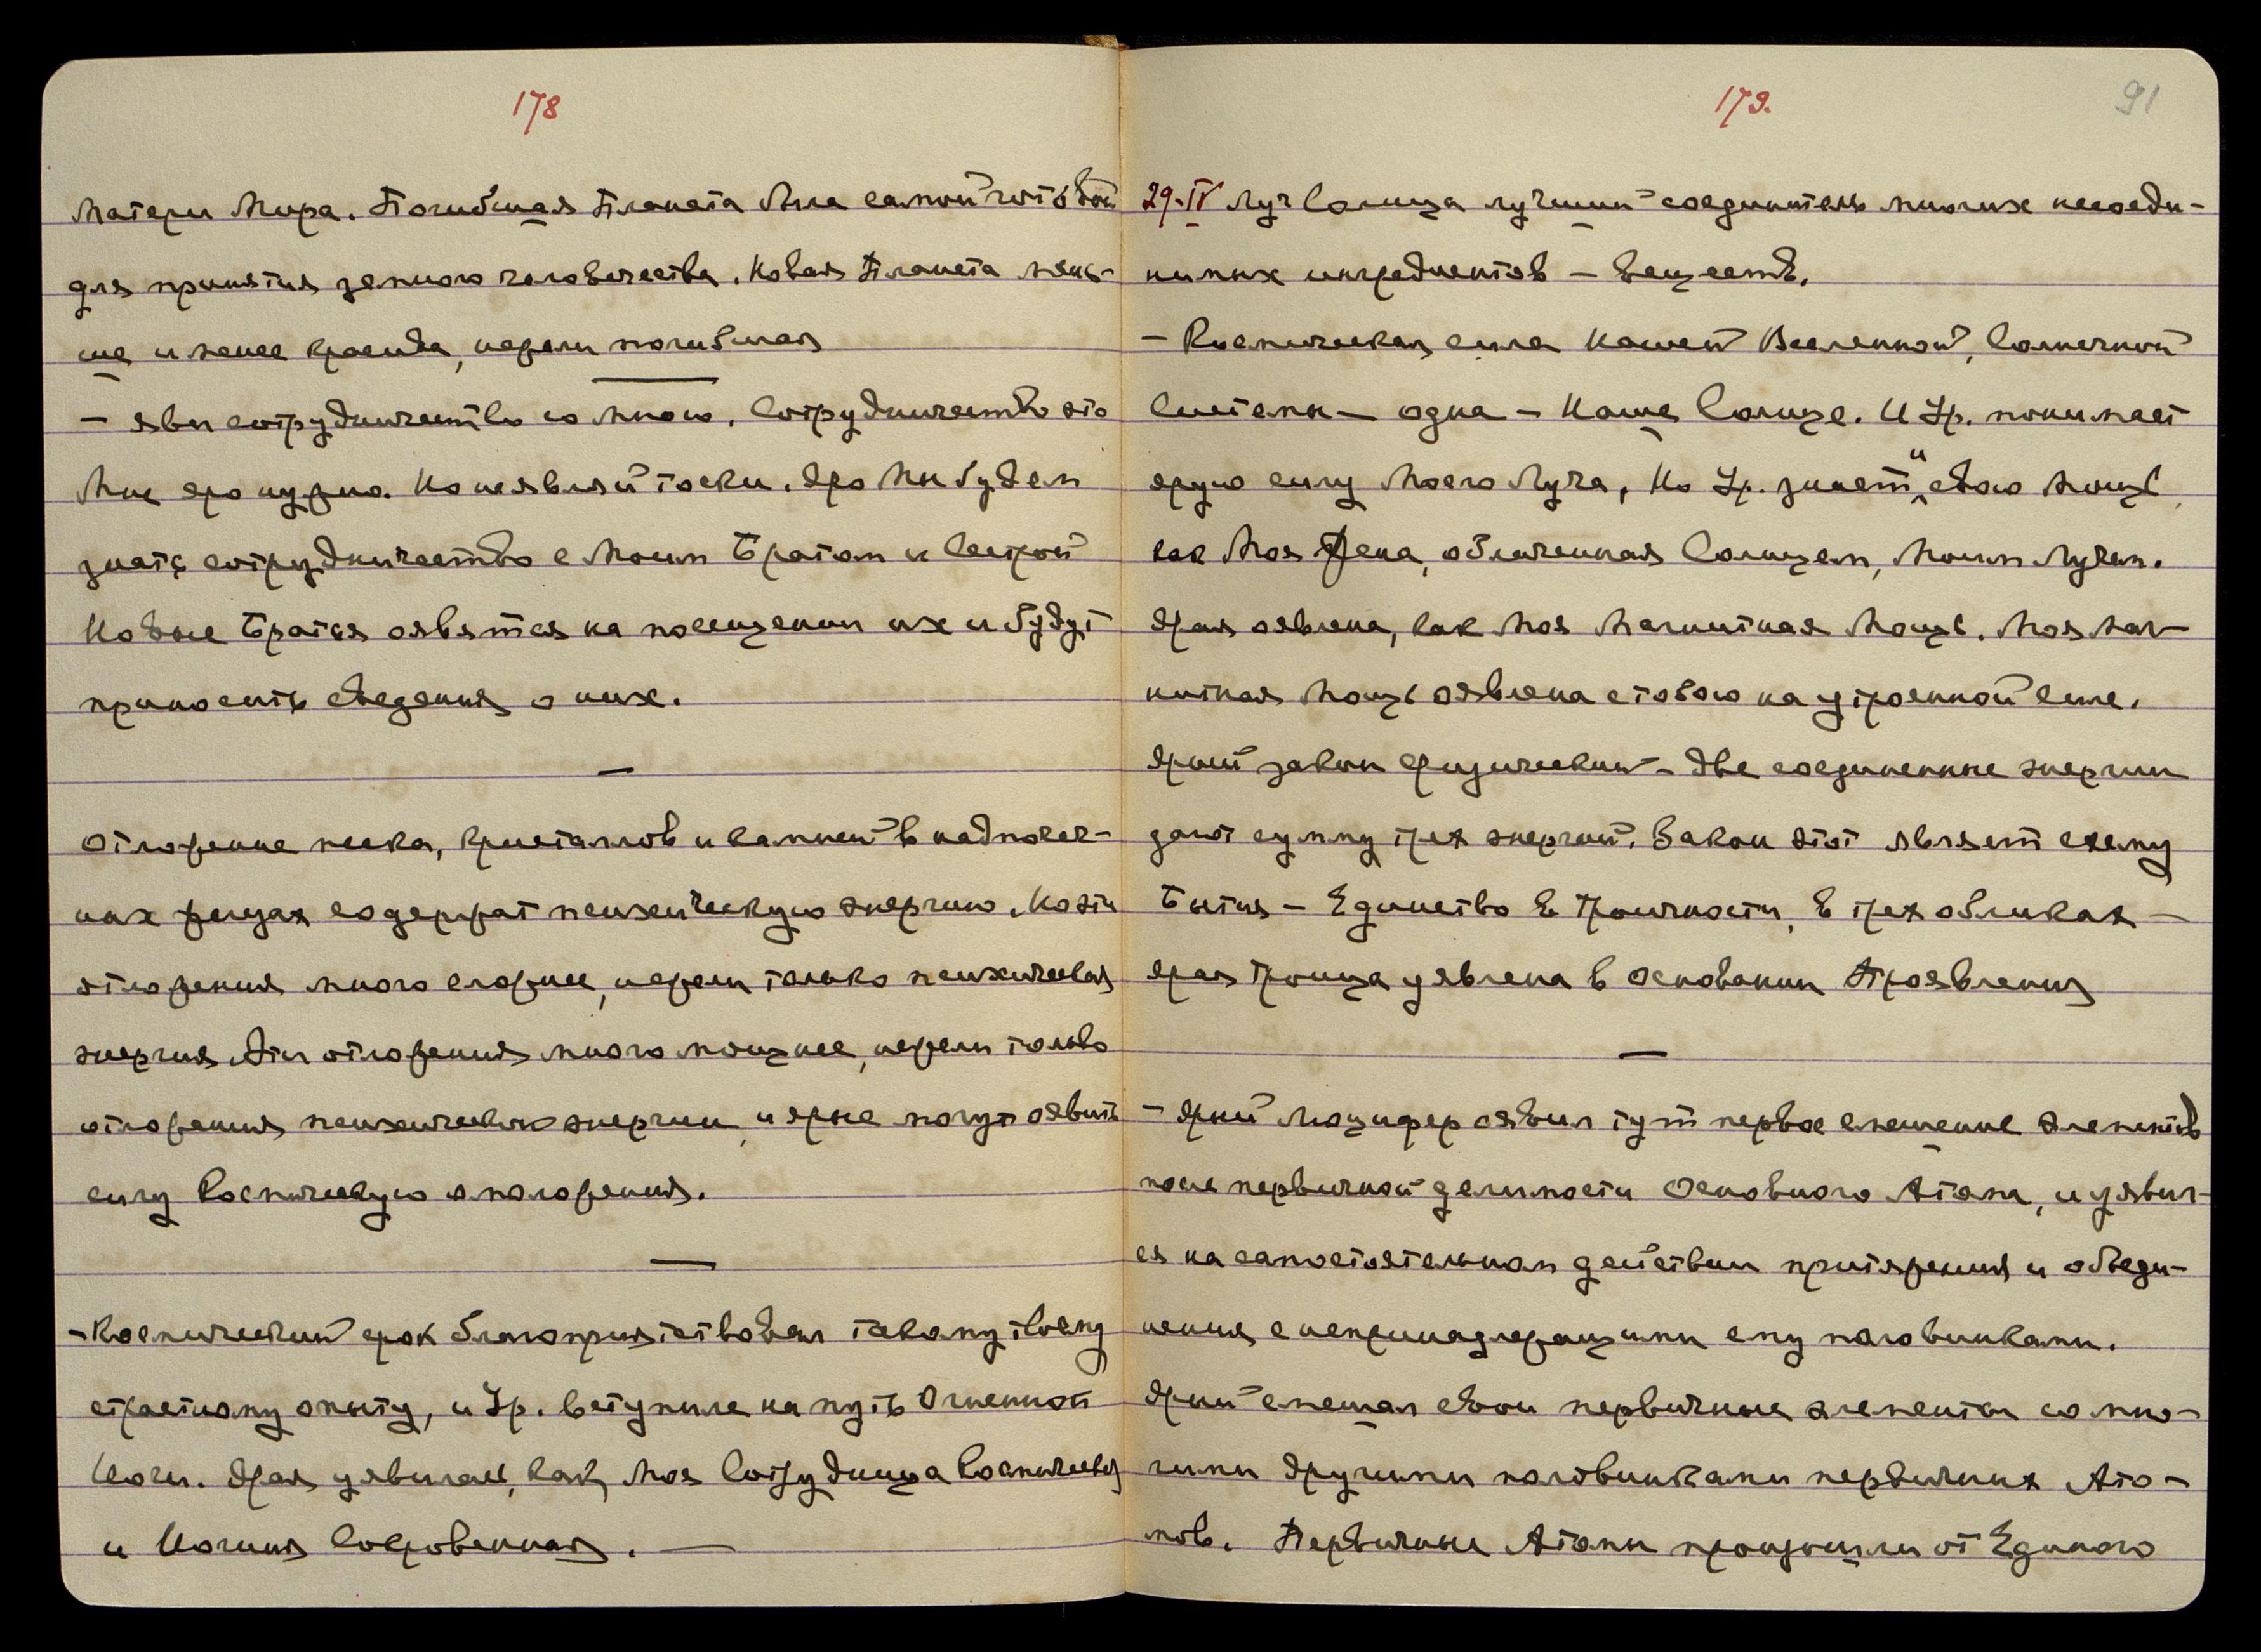 178
Матери Мира. Погибшая Планета Мне самой готовой
для принятия земного человечества. Новая Планета мень-
ше и менее красива, нежели погибшая
— яви сотрудничество со мною. Сотрудничество это
Мне яро нужно. Но не являй тоски. Яро Мы будем
знать сотрудничество с Моим Братом и Сестрой
Новые Братья оявятся на посещении их и будут
приносить сведения о них.
—
Отложение песка, кристаллов и камней в надпочеч-
ных железах содержат психическую энергию. Но эти
отложения много сложнее, нежели только психическая
энергия. Эти отложения много мощнее, нежели только
отложения психической энергии, и ярые могут оявить
силу Космическую омоложения.
—
— Космический срок благоприятствовал такому твоему
страстному опыту, и Ур. вступила на путь Огненной
Йоги. Ярая уявилась, как Моя Сотрудница Космическая
и Йогиня Сокровенная. —
179.
91
29.IV Луч Солнца лучший соединитель многих несоеди-
нимых ингредиентов — веществ.
— Космическая сила Нашей Вселенной, Солнечной
Системы — одна — Наше Солнце. И Ур. понимает
ярую силу Моего Луча, Но Ур. знает и свою мощь,
как Моя Жена, облеченная Солнцем, Моим Лучем.
Ярая оявлена, как Моя Магнитная Мощь. Моя маг-
нитная Мощь оявлена с тобою на утроенной силе.
Ярый закон физический — две соединенные энергии
дают сумму трех энергий. Закон этот являет схему
Бытия — Единство в Троичности, в трех обликах —
ярая Троица уявлена в Основании Проявления
—
— Ярый Люцифер оявил тут первое смешение элементов
после первичной делимости Основного Атома, и уявил-
ся на самостоятельном действии притяжения и объеди-
нения с непринадлежащими ему половинками.
Ярый смешал свои первичные элементы со мно-
гими другими половинками первичных Ато-
мов. Первичные Атомы произошли от Единого